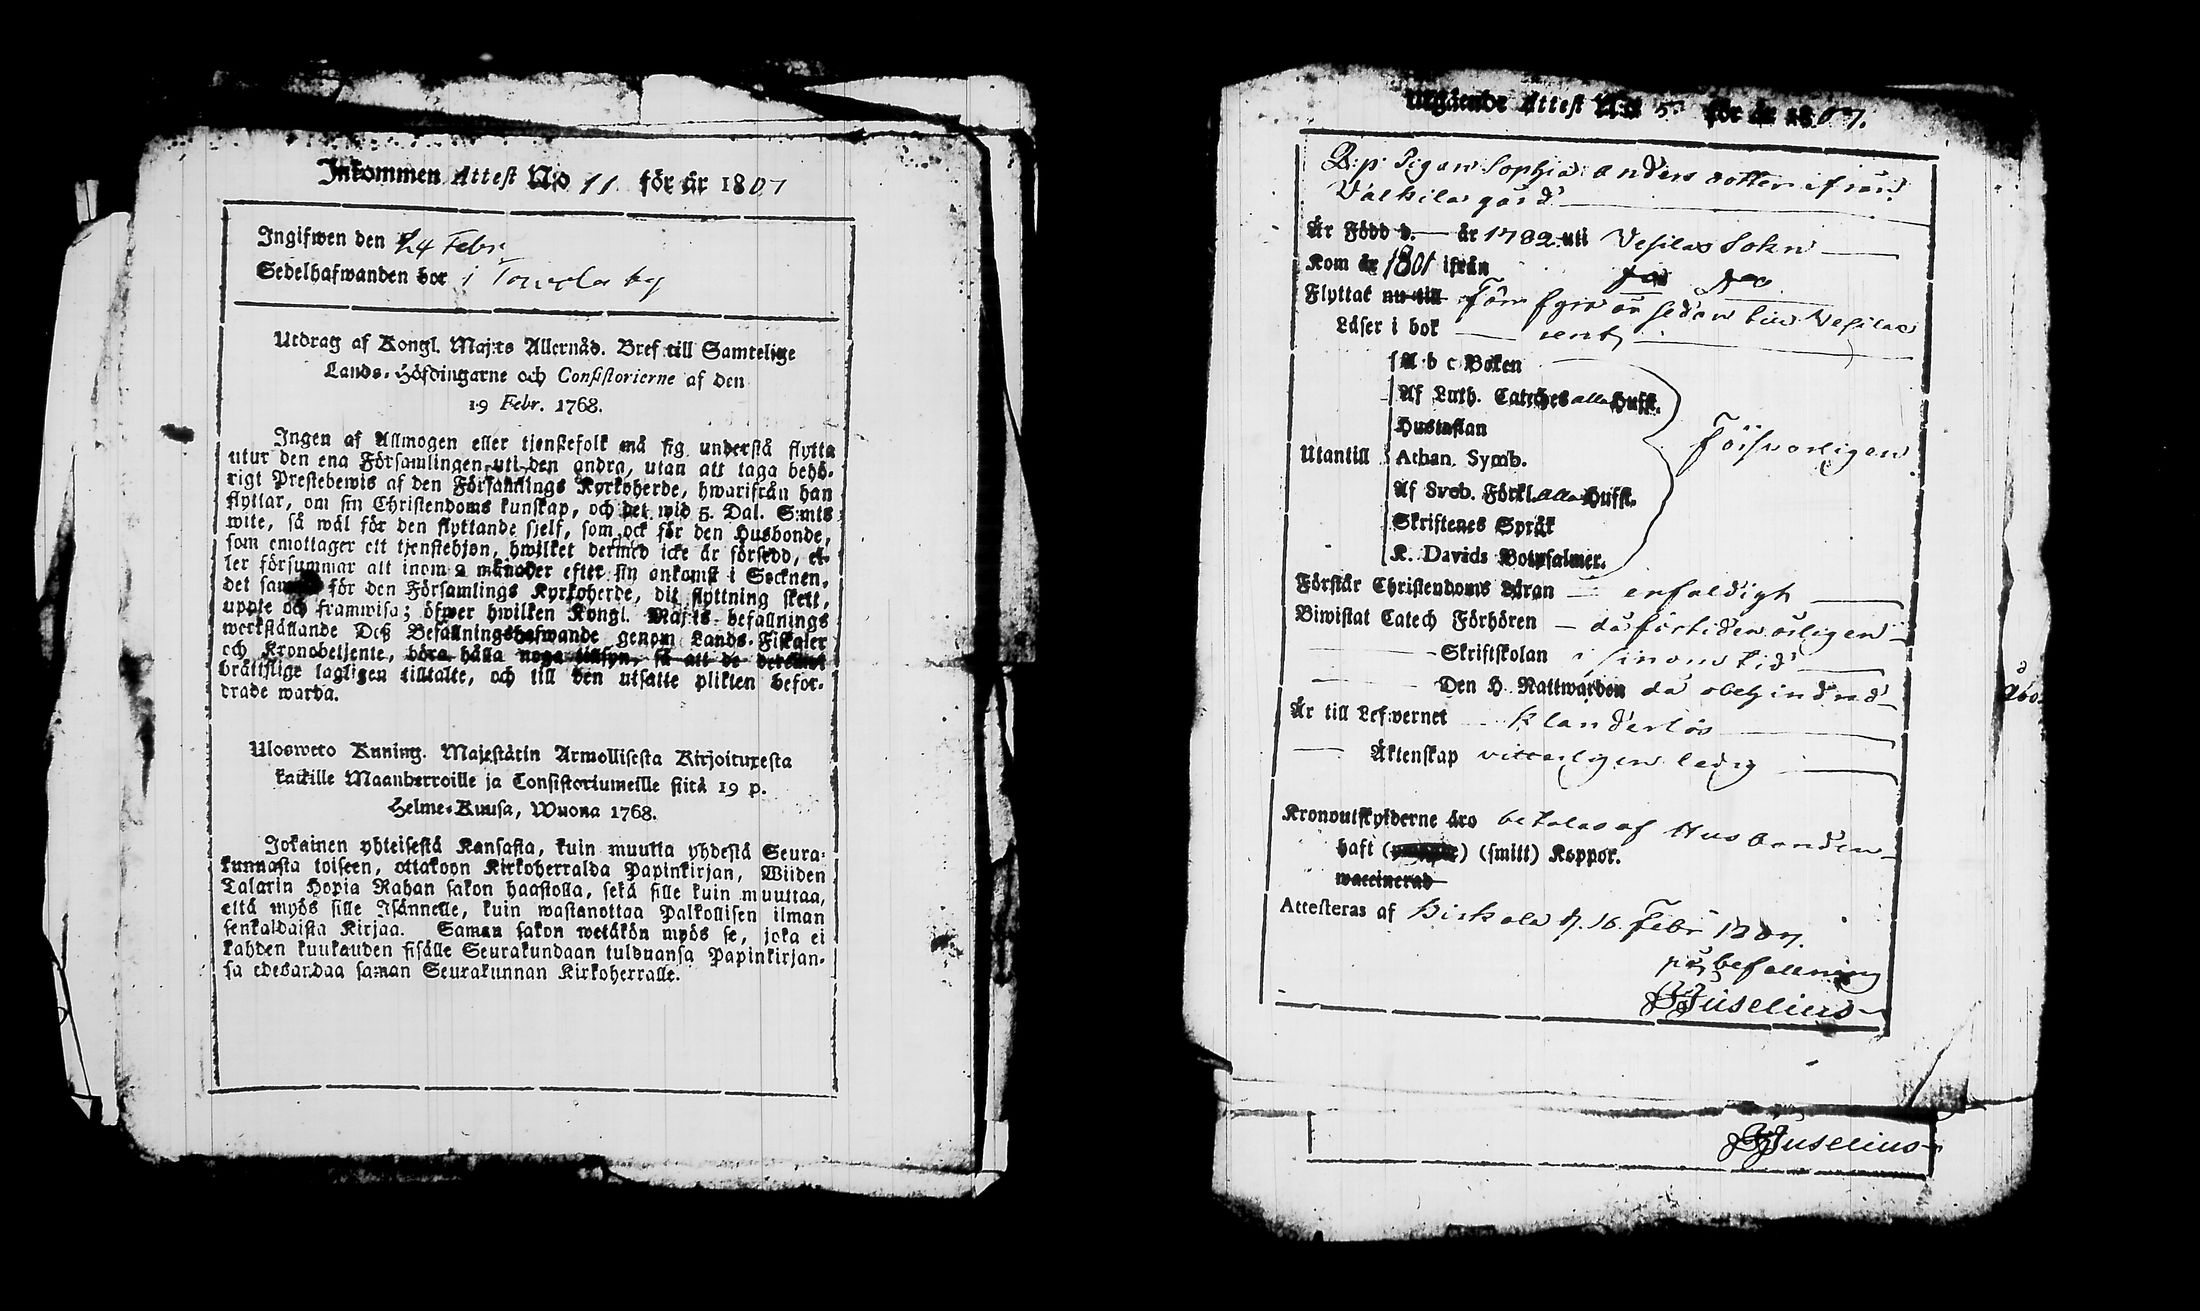 Inkommen Attest N:o 11 för år 1807
Ingifwen den 24 Febr.
Sedelhafwanden bor i by
Utdrag af Kongl. Maj:ts Allernåd. Bref till Samtelige
Lands-Höfdingarne och Consistorierne af den
19 Febr. 1768.
Ingen af Allmogen eller tjenstefolk må sig understå flytta
utur den ena Församlingen uti den andra, utan att taga behö-
rigt Prestebewis af den Församlings Kyrkoherde, hwarifrån han
flyttar, om sin Christendoms kunskap, och det wid 5. Dal. S:mts
wite, så wäl för den flyttande sjelf, som ock för den Husbonde,
som emottager ett tjenstehjon, hwilket dermed icke är försedd, el-
ler försummar att inom 2 månader efter sin ankomst i Socknen,
det samma för den Församlings Kyrkoherde, dit flyttning skett,
uppte och framwisa; öfwer hwilken Kongl. Maj:ts befallnings
werkställande Deß Befallningshafwande genom Lands-Fiskaler
och Kronobetjente, böra hålla noga tillsyn, så att de
bråttslige lagligen tilltalte, och till den utsatte plikten befor-
drade warda.
Ulosweto Kuning. Majestätin Armollisesta Kirjoituxesta
kaikille Maanherroille ja Consistoriumeille siitä 19 p.
Helme-Kuusa, Wuona 1768.
Jokainen yhteisestä Kansasta, kuin muutta yhdestä Seura-
kunnasta toiseen, ottakoon Kirkoherralda Papinkirjan, Wiiden
Talarin Hopia Rahan sakon haastolla, sekä sille kuin muuttaa,
että myös sille Isännelle, kuin wastanottaa Palkollisen ilman
senkaldaista Kirjaa. Saman sakon wetäkön myös se, joka ei
kahden kuukauden sisälle Seurakundaan tulduansa Papinkirjan-
sa edesandaa saman Seurakunnan Kirkoherralle.
Utgående Attest N:o 5 för år 1807.
B:p: Pigan Sophia Anders dotter ifrån
Valkila gård
Är Född d. — år 1782 uti Vesilax Sokn
Kom år 1801 ifrån
Flyttat nu till för fyra år sedan till Vesilax
Läser i bok — rent
A b c Boken
Af Luth. Cateches alla Hufst.
Hustaflan
Utantill Athan. Symb.
Försvarligen
Af Sveb. Förkl. alla Hufst.
Skriftenes Språk
K. Davids Botpsalmer.
Förstår Christendoms Läran — enfaldigt
Biwistat Catech Förhören — då för tiden årligen
Skriftskolan i sinom tid
Den H. Nattwarden då obehindrad
Är till Lefwernet klanderlös
Äktenskap vitterligen ledig
Kronoutskylderne äro betalas af Husbonden
haft () (smitt) Koppor.
waccinerad
Attesteras af Birkala d. 16 Febr 1807.
på befallning
Juselius
Juselius